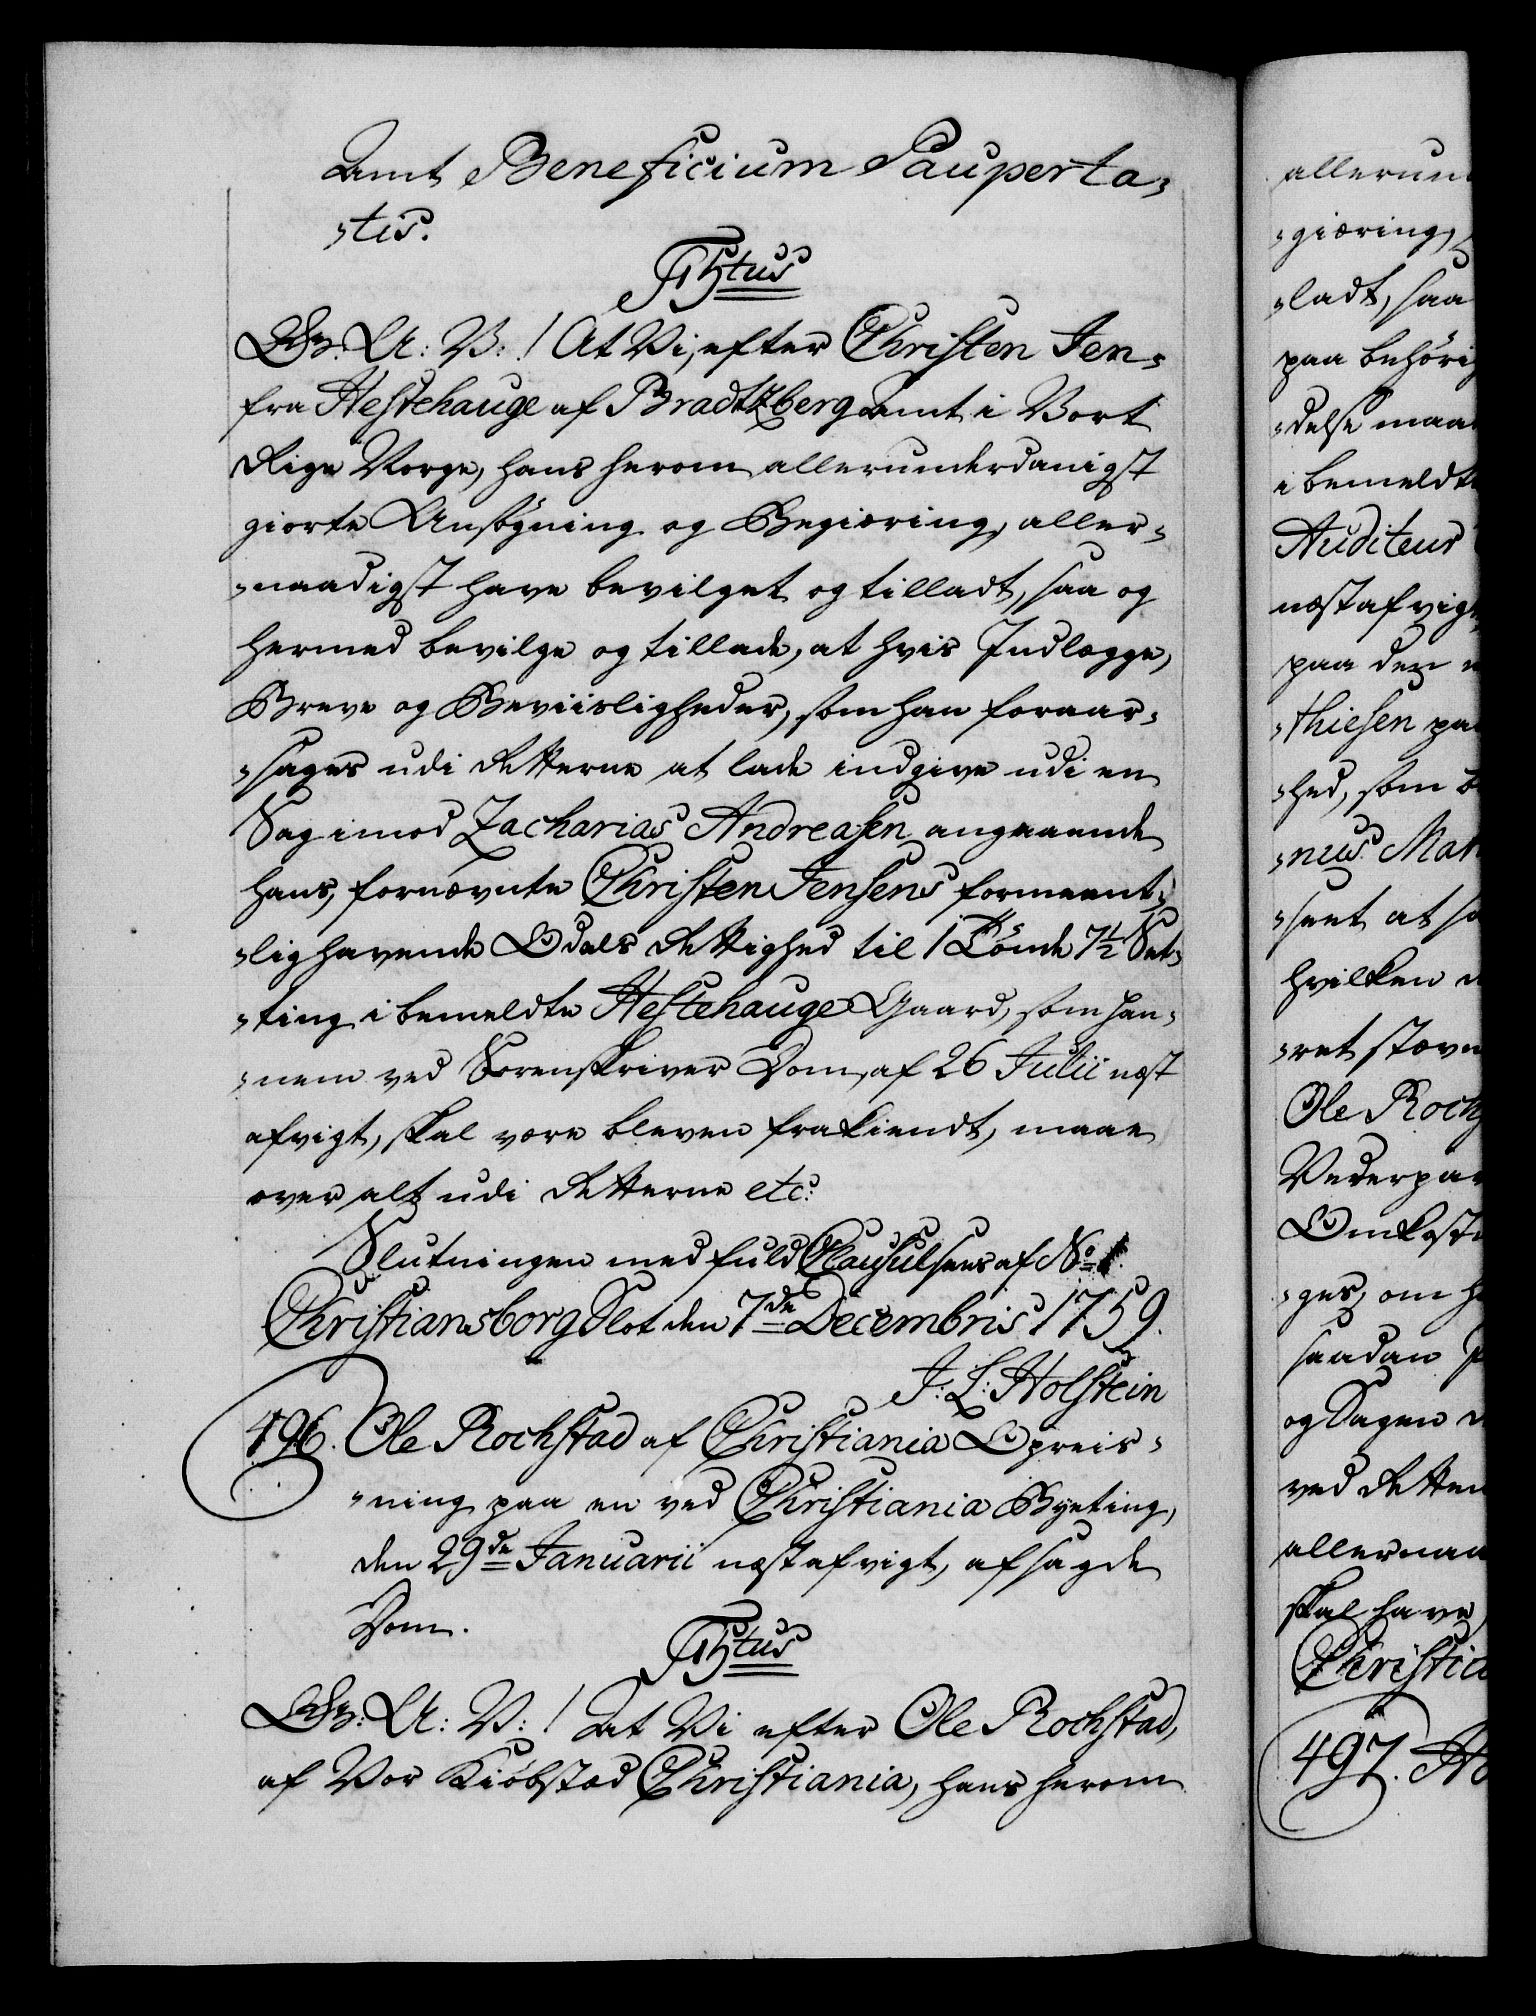 Amt Beneficium Pauperta-
-tis.
F 5tus
Gr: A: V: ! At Vi, efter Christen Jen-
fra Hestehauge af Bradtzberg Amt i Vort
Rige Norge, hans herom allerunderdanigst
giorte Ansøgning og Begiæring, aller-
-naadigst have bevilget og tilladt, saa og
hermed bevilge og tillade, at hvis Indlægge,
Breve og Beviisligheder, som han foraar-
-sages udi Retterne at lade indgive udi en
Sag imod Zacharias Andreasen angaaende
hans, fornævnte Christen Jensens formeent-
-lig havende Odels Rettighed til 1 Tønde 7½ Set-
-ting i bemeldte Hestehauge Gaard, som han-
-nem ved Sorenskriver Dom, af 26 Julii næst
afvigt, skal være bleven frakiendt, maae
over alt udi Retterne etc:
Slutningen med fuld Clausul sees af No 1.
Christiansborg Slot den 7de Decembris 1759.
J: L: Holstein
496. Ole Rochstad af Christiania Opreis-
-ning paa en ved Christiania Byeting,
den 29de Januarii næstafvigt, afsagde
Dom.
F 5tus
Gr: A: V: ! At Vi efter Ole Rochstad,
af Vor Kiøbstad Christiania, hans herom
allerun
-giæring,
-ladt, saa
paa behøri
-delse maa
i bemeldte
Auditeur
næstafvig
paa den
-thiesen pa
-hed, som
-nus Mar
-sent at
hvilken
-ret stævn
Ole Roch
Vederpar
Omkost
-ges, om
saadan
og Sagen
ved Retten
allernaa
skal have
Christia
497. Ho